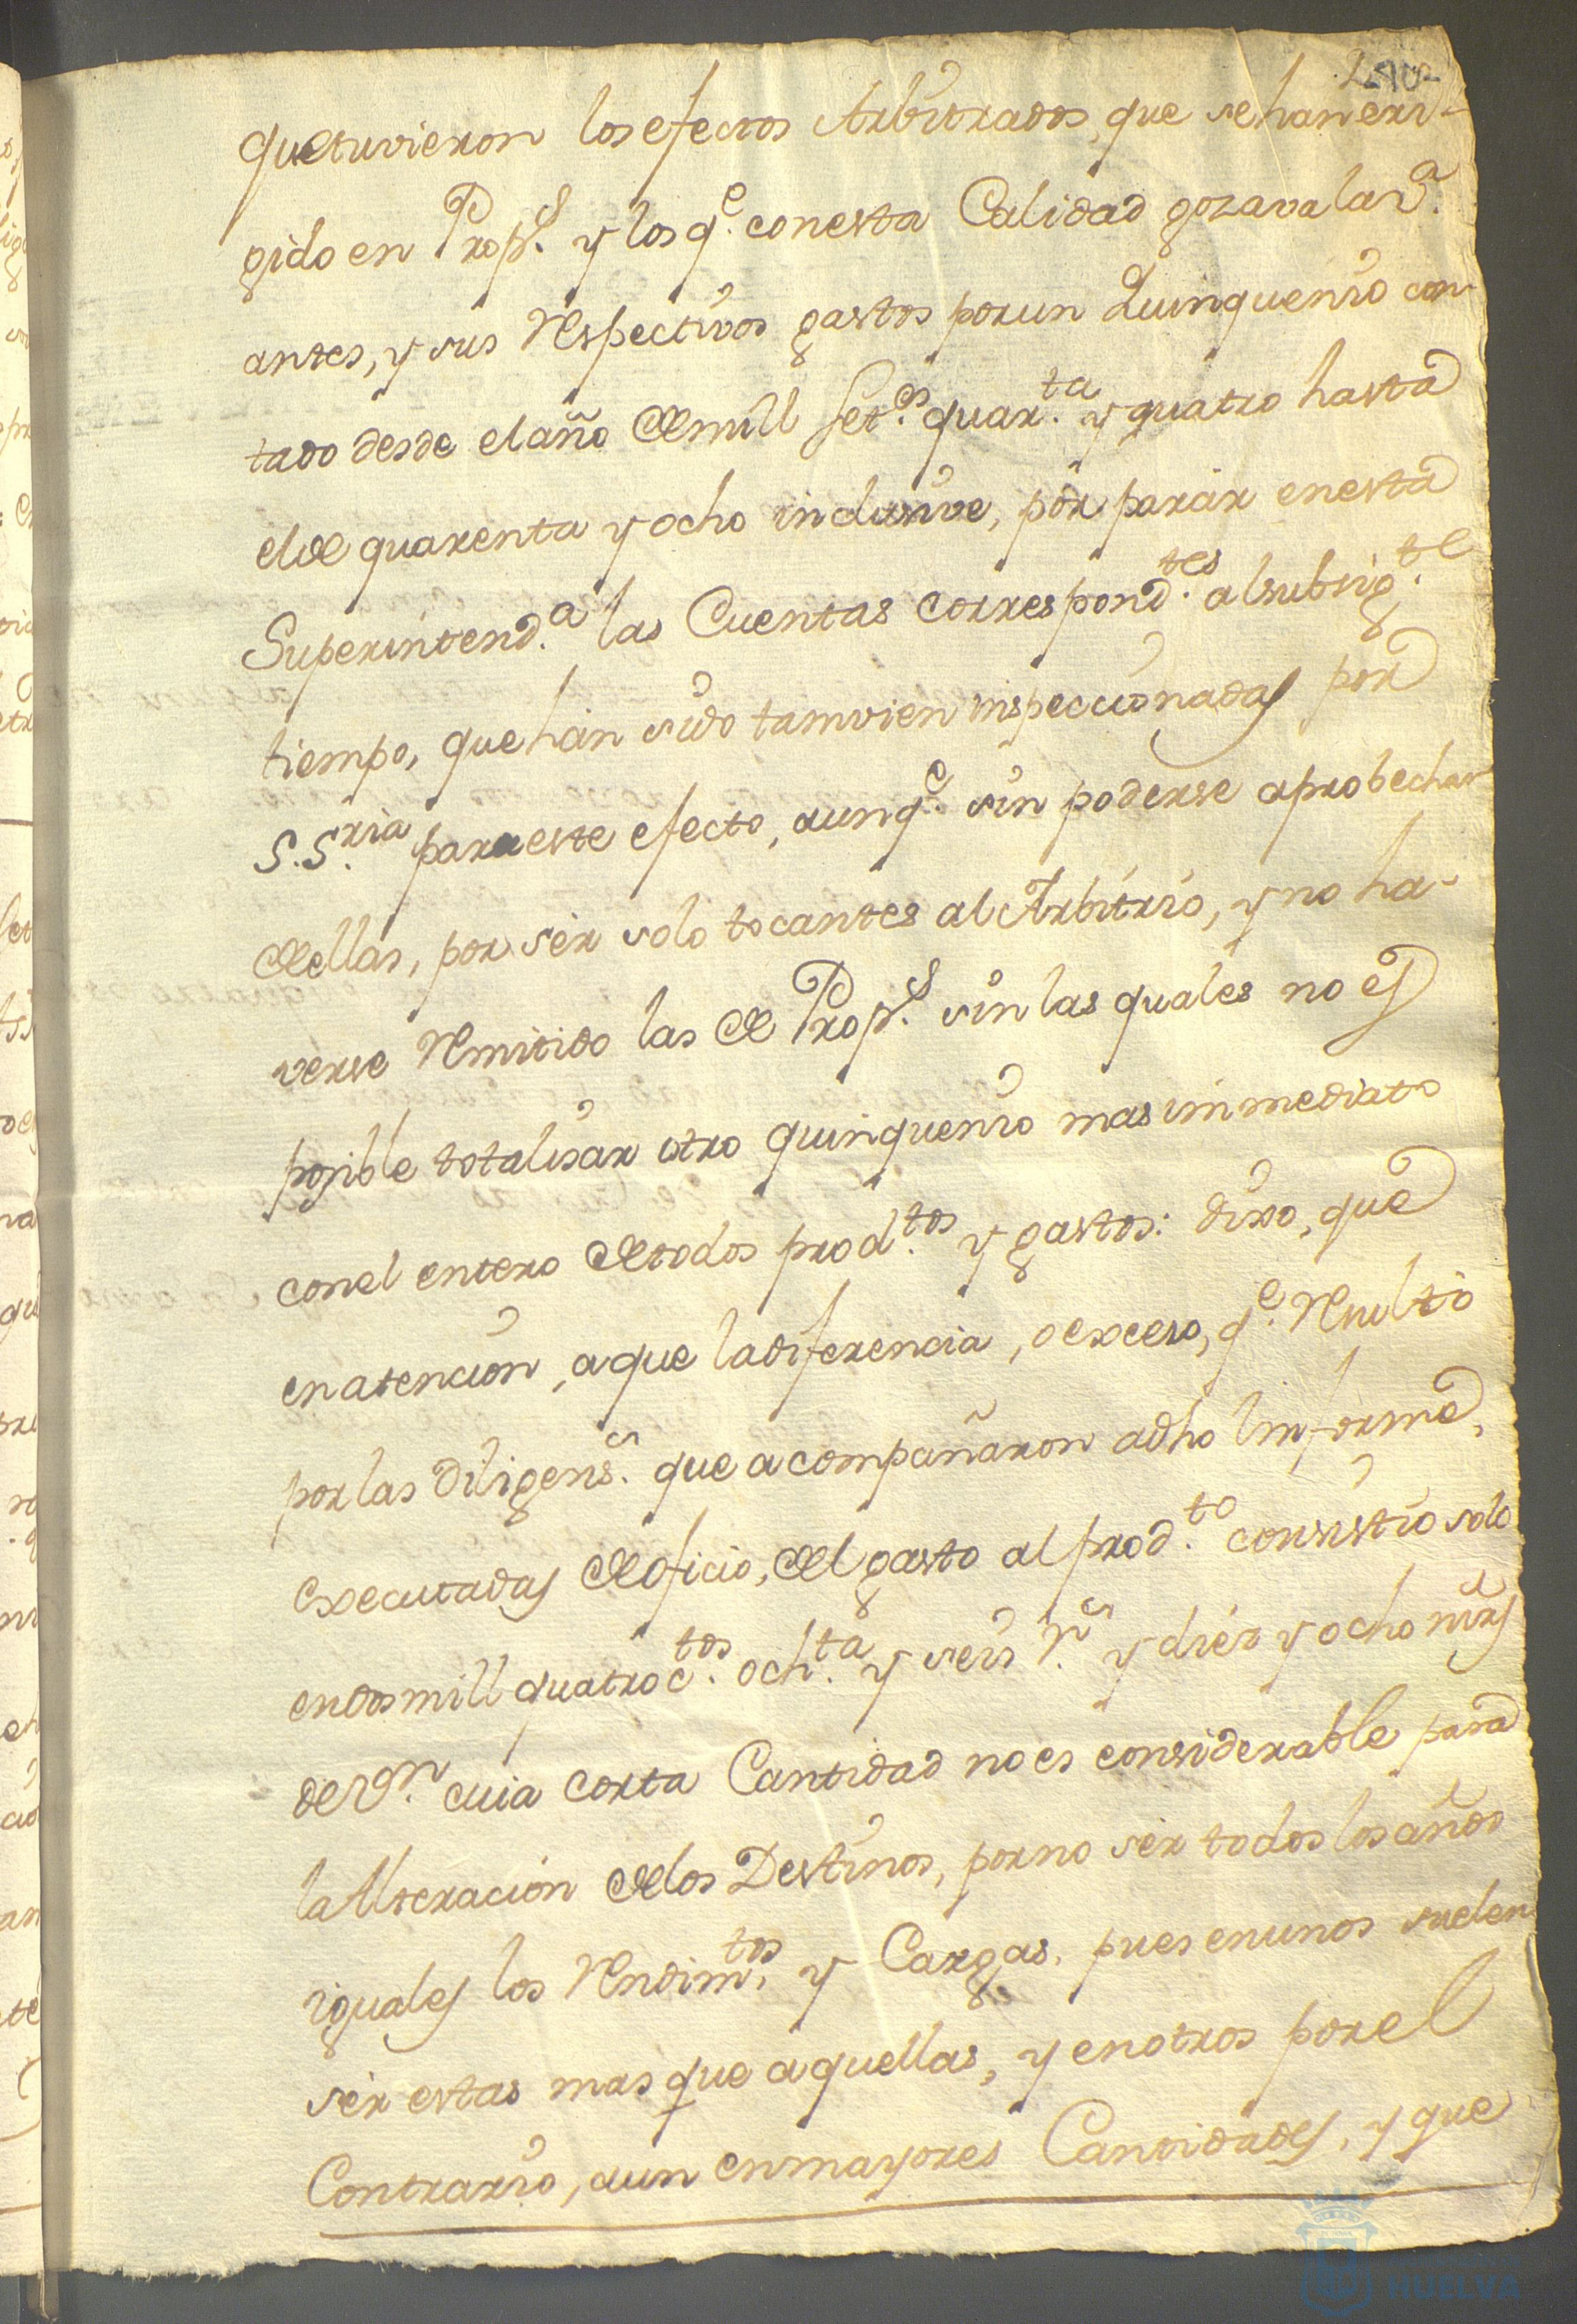 que tuvieron los efectos Arbitrados, que se han eri-
gido en Prop.s y los q.e con esta Calidad gozava la V.a
antes, y sus respectivos gastos por un Quinquenio con-
tado desde el año de mill Set.os quar.ta y quatro hasta
el de quarenta y ocho inclusive, por parar en esta
Superintend.a las Cuentas correspond.tes al subsig.te
tiempo, que han sido tamvien inspeccionadas por
S.S.ria para este efecto, aunq.e sin poderse aprobechar
de ellas, por ser solo tocantes al Arbitrio, y no ha-
verse remitido las de Prop.s sin las quales no es
posible totalisar otro quinquenio mas immediato
con el entero de todos prod.tos y gastos: dixo, que
en atencion, a que la diferencia, o exceso, q.e resultó
por las Diligens.s que acompañaron a dho Informe,
executadas de oficio, del gasto al prod.to consistio solo
en dos mill quatroc.tos och.ta y seis r.s y diez y ocho mrs
de v.n cuia corta Cantidad no es considerable para
la Alteracion de los Destinos, por no ser todos los años
iguales los rendim.tos y Cargas, pues en unos suelen
ser estas mas que aquellas, y en otros por el
Contrario, aun en mayores Cantidades, y que
HUELVA